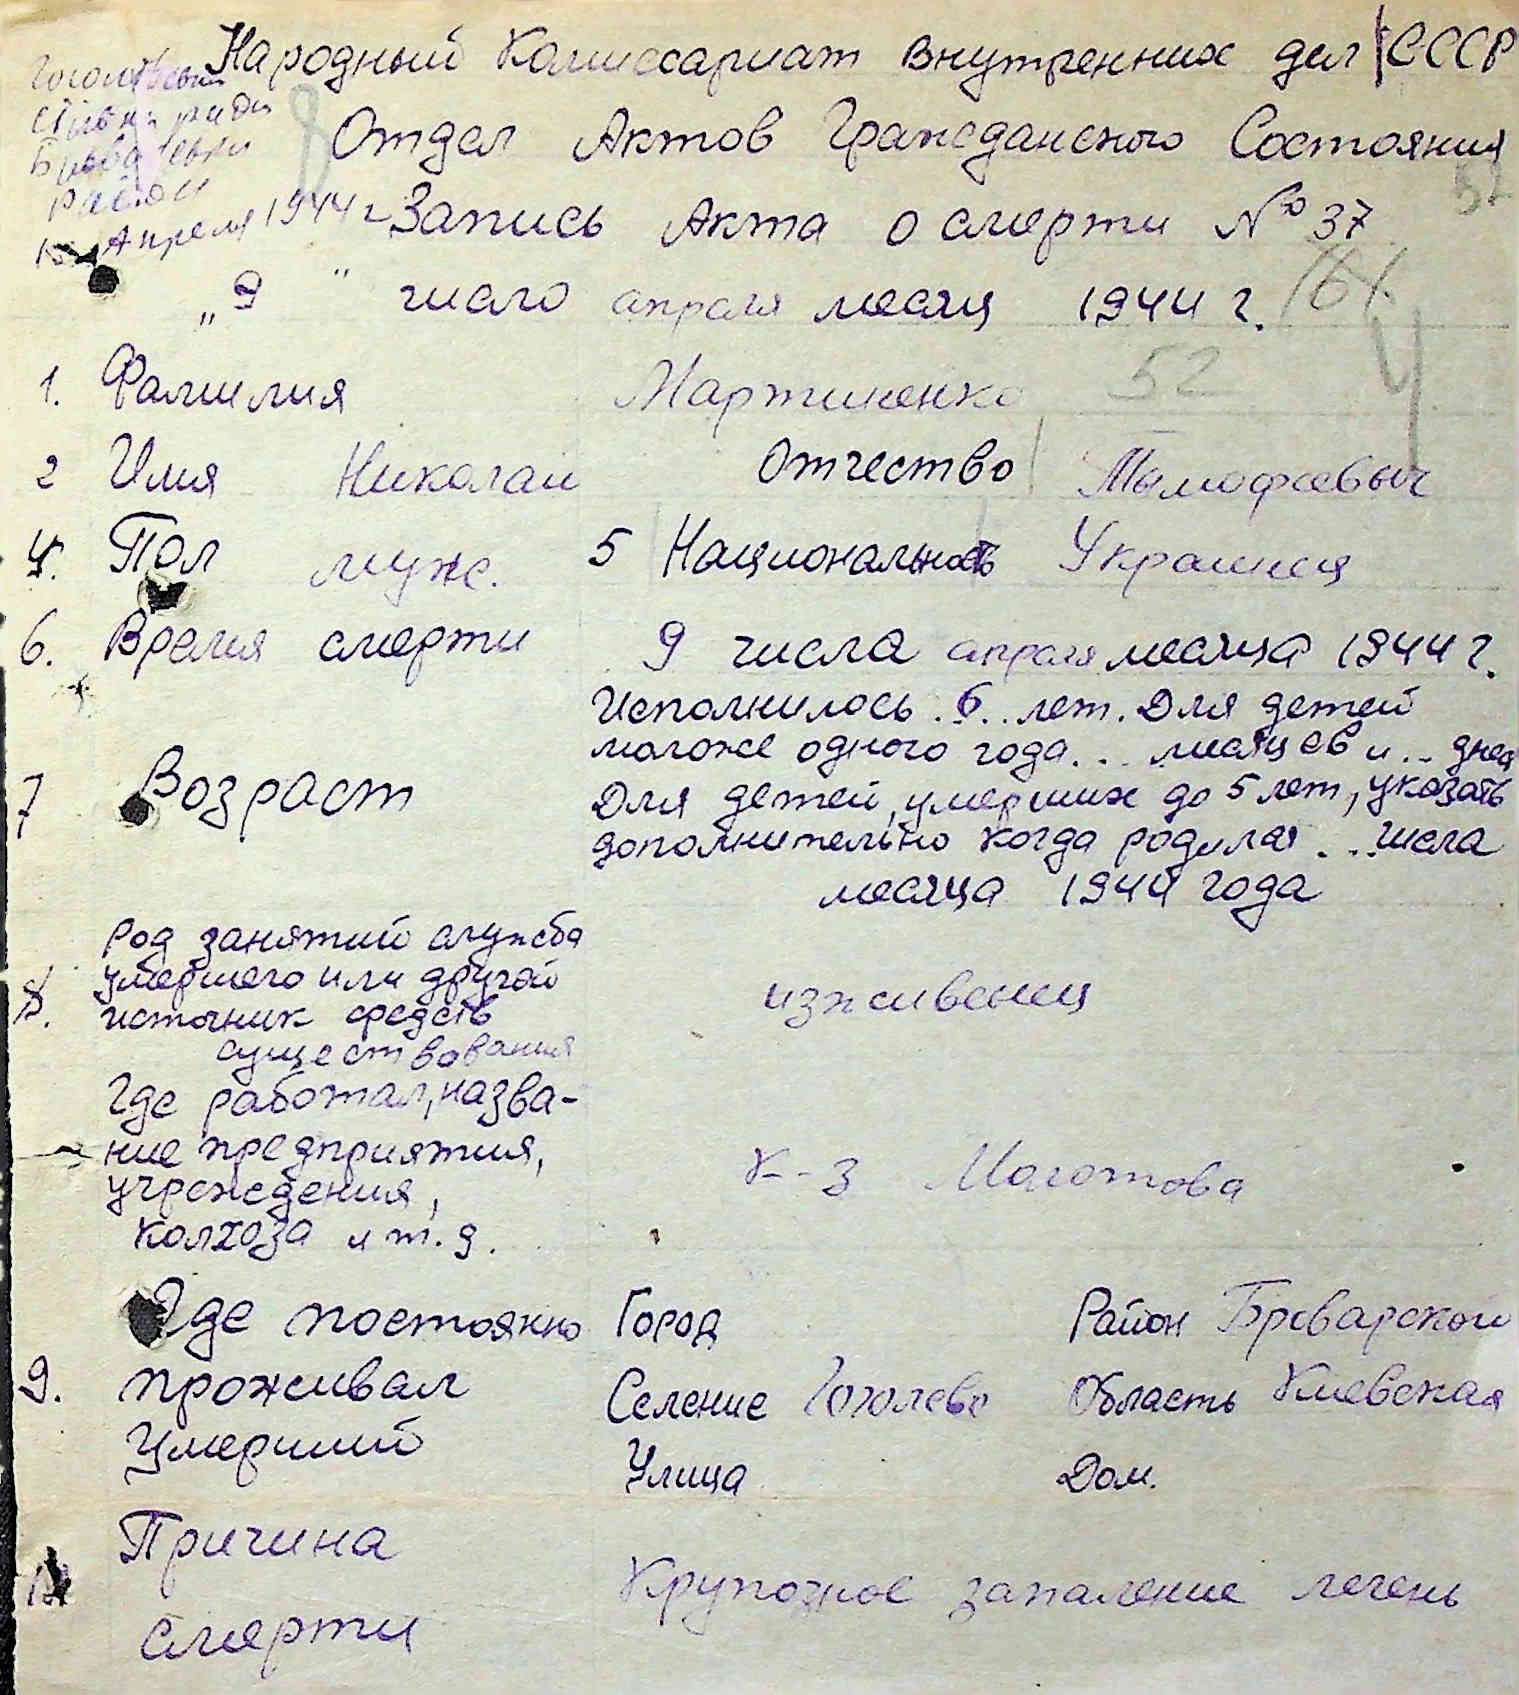 Народный Комиссариат Внутренних дел СССР
Отдел Актов Гражданского Состояния
Апреля 1944 г
Запись Акта о смерти № 37
„9" число апреля месяц 1944 г.
1. Фамилия Мартиненко 52
2 Имя Николай Отчество Тымофеевыч
4. Пол муж. 5 Национальность Украинец
6. Время смерти 9 числа апреля месяца 1944 г.
Исполнилось . 6 . . лет. Для детей
моложе одного года . . . месяцев и . . дней
7 Возраст
Для детей, умерших до 5 лет, указать
дополнительно когда родился . . . числа
месяца 1944 года
8. род занятий служба
умершего или другой
источник средств
существования
изживенец
Где работал, назва-
ние предприятия,
учреждения,
колхоза и т. д.
К-з Молотова
9. Где постоянно
проживал
Умерший
Город Район Броварской
Селение Гоголево Область Киевская
Улица Дом.
Причина
смерти
Крупозное запаление легень